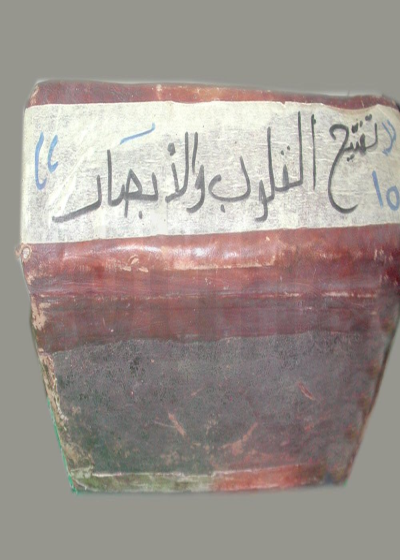 «تفتيح القلوب والأبصار»
١٥